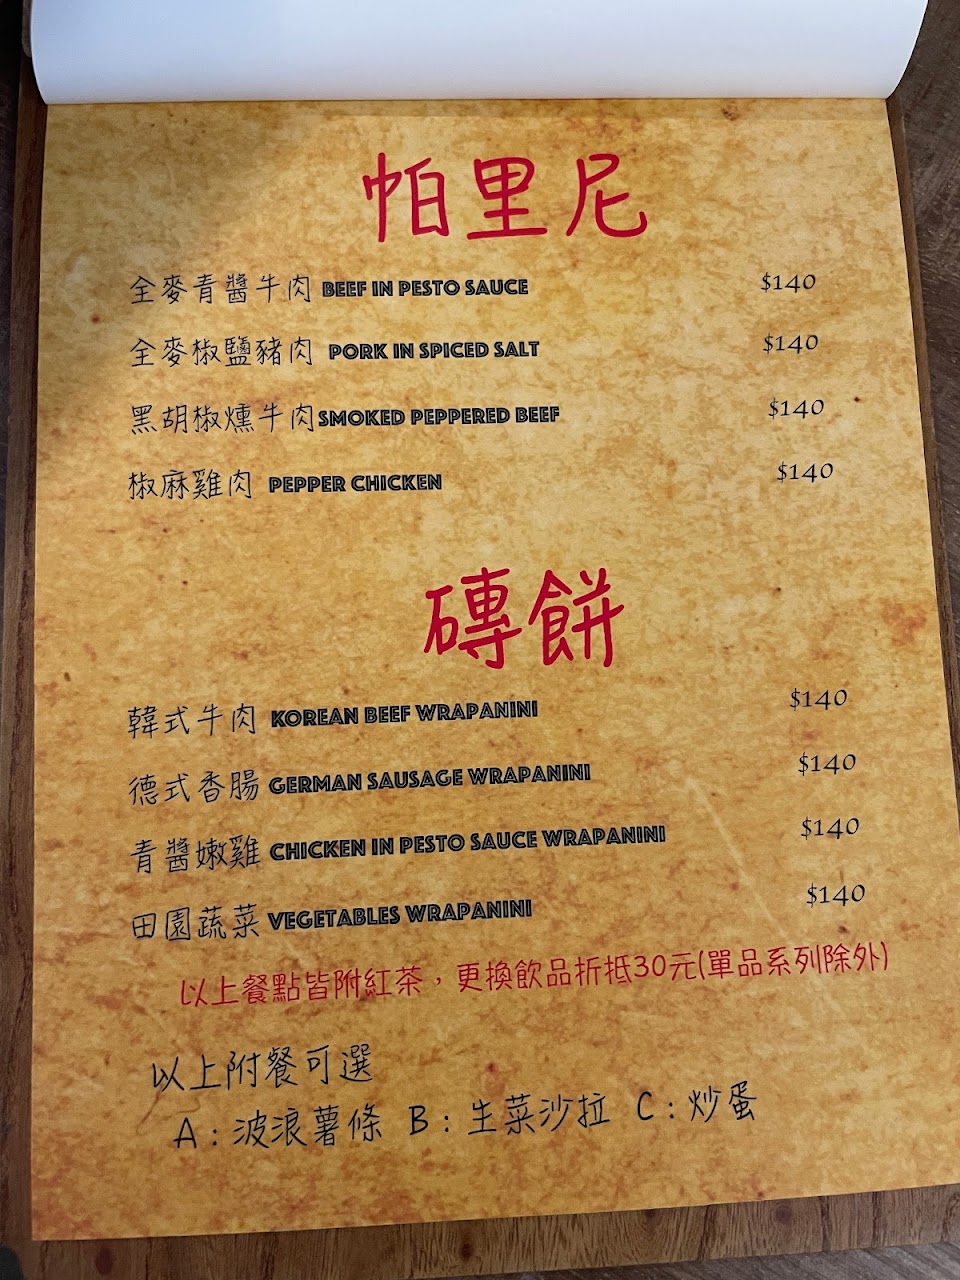 帕里尼
全麥青醬牛肉 BEEF IN PESTO SAUCE $140
全麥椒鹽豬肉 PORK IN SPICED SALT $140
黑胡椒燻牛肉SMOKED PEPPERED BEEF $140
椒麻雞肉 PEPPER CHICKEN $140
磚餅
韓式牛肉 KOREAN BEEF WRAPANINI $140
德式香腸 GERMAN SAUSAGE WRAPANINI $140
青醬嫩雞 CHICKEN IN PESTO SAUCE WRAPANINI $140
田園蔬菜 VEGETABLES WRAPANINI $140
以上餐點皆附紅茶，更換飲品折抵30元(單品系列除外)
以上附餐可選
A：波浪薯條 B：生菜沙拉 C：炒蛋